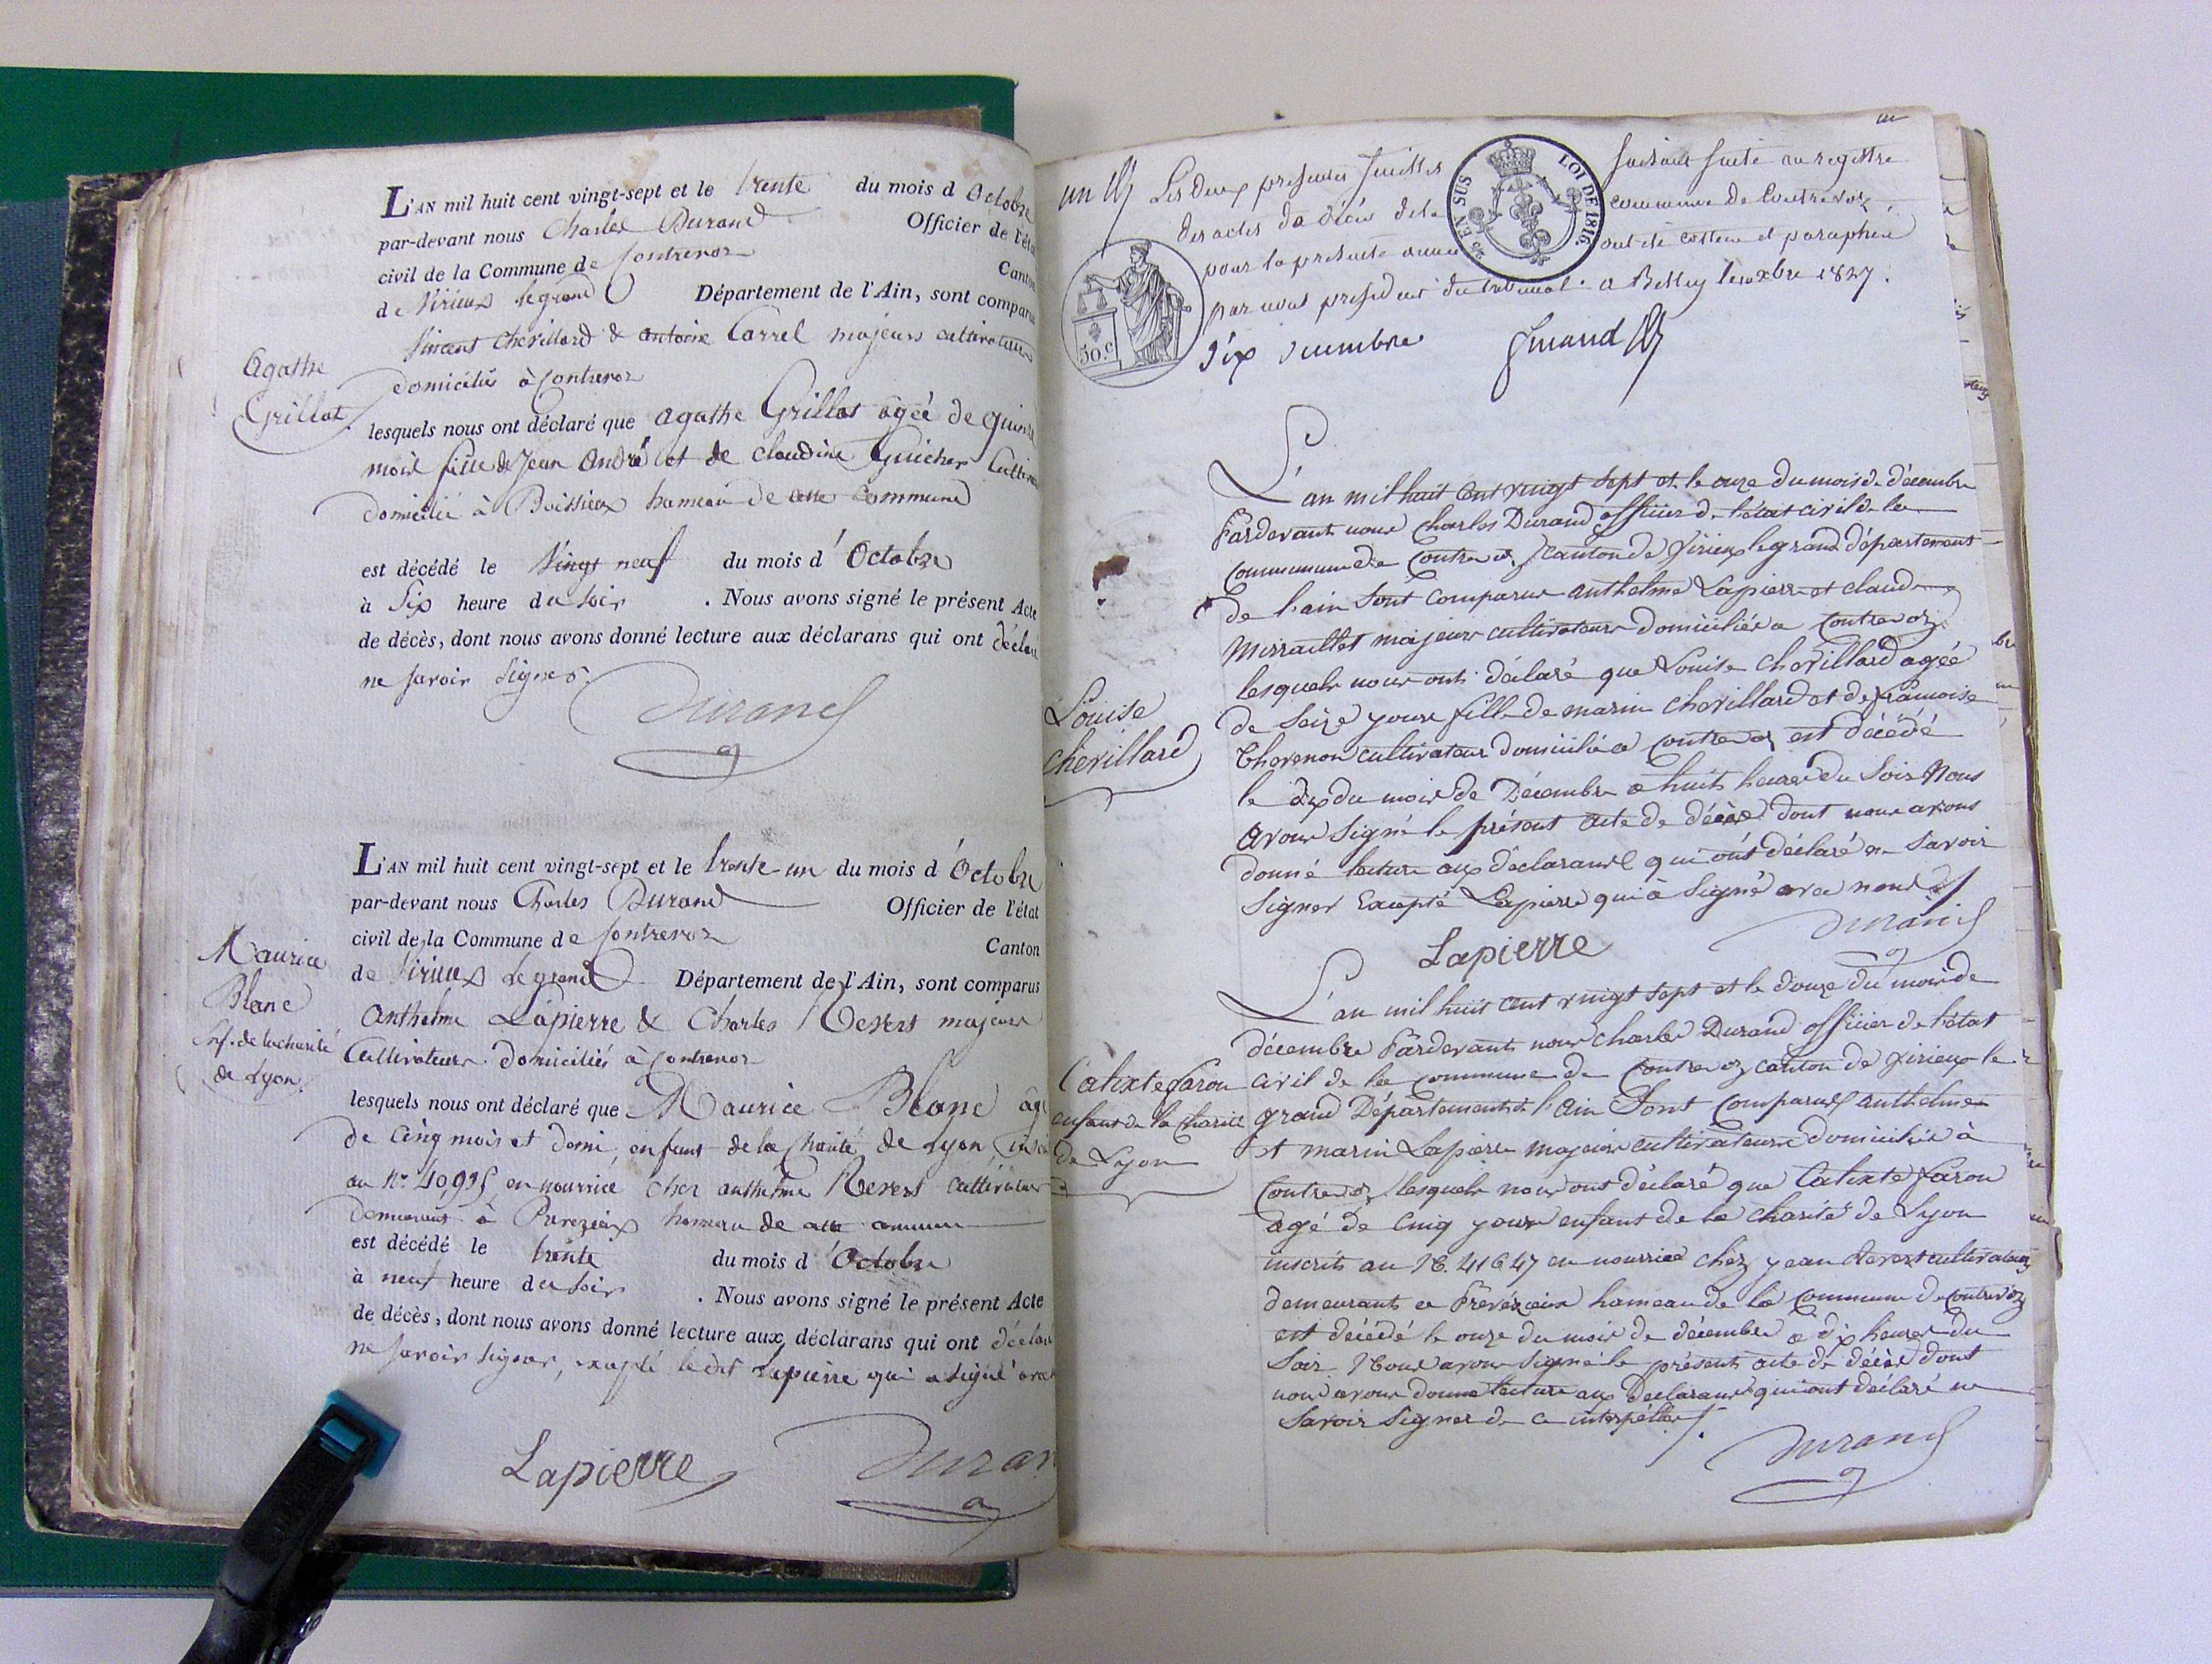 L'AN mil huit cent vingt-sept et le trente du mois d'Octobre
par-devant nous Charles Durand Officier de l'éta
civil de la Commune de Contrevoz Canton
de Virieux le grand Département de l'Ain, sont comparus
Vincent Chevillard & antoine Carrel majeurs cultivateurs
domiciliés à Contrevoz
Agathe
Grillot.
lesquels nous ont déclaré que agathe Grillot agée de quinze
mois fille de Jean André et de claudine Guicher Cultiva
domicilié à Boissieux hameau de cette commune
est décédé le Vingt neuf du mois d'Octobre
à Six heure du Soir . Nous avons signé le présent Acte
de décès, dont nous avons donné lecture aux déclarans qui ont déclaré
ne savoir signer.
Durand
L'AN mil huit cent vingt-sept et le trente un du mois d'Octobre
par-devant nous Charles Durand Officier de l'état
civil de la Commune de Contrevoz Canton
de Virieux le grand Département de l'Ain, sont comparus
Anthelme Lapierre & Charles Revert majeurs
Cultivateurs domiciliés à Contrevoz
Maurice
Blanc
Enf. de la charité
de Lyon.
lesquels nous ont déclaré que Maurice Blanc âgé
de Cinq mois et demi, enfant de la Charité de Lyon
au No. 40,995, en nourrice chez anthelme Revert cultivateur
demeurant à hameau de cette commune
est décédé le trente du mois d'Octobre
à neuf heure du Soir . Nous avons signé le présent Acte
de décès, dont nous avons donné lecture aux déclarans qui ont déclaré
ne savoir signer, excepté ledit Lapierre qui a signé avec
Lapierre Duran
un Les deux presentes feuilles faisant suite au registre
des actes de décès de la commune de Contrevoz
pour la presente année ont été cottées et paraphées
par nous president du tribunal a Belley le 10 xbre 1827.
dix décembre
2es EN SUS LOI DE 1816.
50.c
L'an mil huit cent vingt sept et le onze du mois de décembre
Pardevant nous Charles Durand officier de l'état civil de la
commune de Contrevoz canton de Virieux le grand département
de l'ain Sont comparus anthelme Lapierre et claude
Mirraillet majeurs cultivateurs domiciliés a Contrevoz
lesquels nous ont déclaré que Louise Chevillard agée
Louise
Chevillard
de Seize jours fille de marin Chevillard et de francoise
Thevenon cultivateur domicilié a Contrevoz est décédé
le dix du mois de Décembre a huit heures du Soir Nous
avons signé le présent acte de décès dont nous avons
donné lecture aux déclarans qui ont déclaré ne savoir
signer Excepté Lapierre qui à signé avec nous
Lapierre Durand
L'an mil huit cent vingt sept et le douze du mois de
décembre Pardevant nous Charles Durand officier de l'état
civil de la commune de Contrevoz canton de Virieux le
Calixte faron
enfant de la charité
de Lyon
grand Département de l'Ain Sont comparus anthelme
et marin Lapierre majeurs cultivateurs domiciliés à
Contrevoz lesquels nous ont déclaré que Calixte faron
agé de Cinq jours enfant de la charité de Lyon
inscrit au No. 41647 en nourrice chez jean Revert cultivateur
demeurant a hameau de la commune de Contrevoz
est décédé le onze du mois de décembre a dix heures du
Soir Nous avons signé le présent acte de décès dont
nous avons donné lecture aux Déclarans qui ont déclaré ne
savoir signer de ce interpellés.
Durand